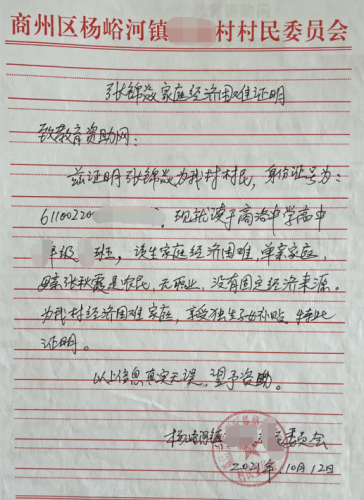 商州区杨峪河镇 村村民委员会
张锦焱家庭经济困难证明
致教育资助网：
兹证明张锦焱为我村村民，身份证号为：
61100220 。现就读于商洛中学高中
年级 班，该生家庭经济困难，单亲家庭，
母亲张秋霞是农民，无职业，没有固定经济来源。
为我村经济困难家庭，享受独生子女补贴。特此
证明。
以上信息真实无误，望予资助。
杨峪河镇 委员会
2021年10月12日